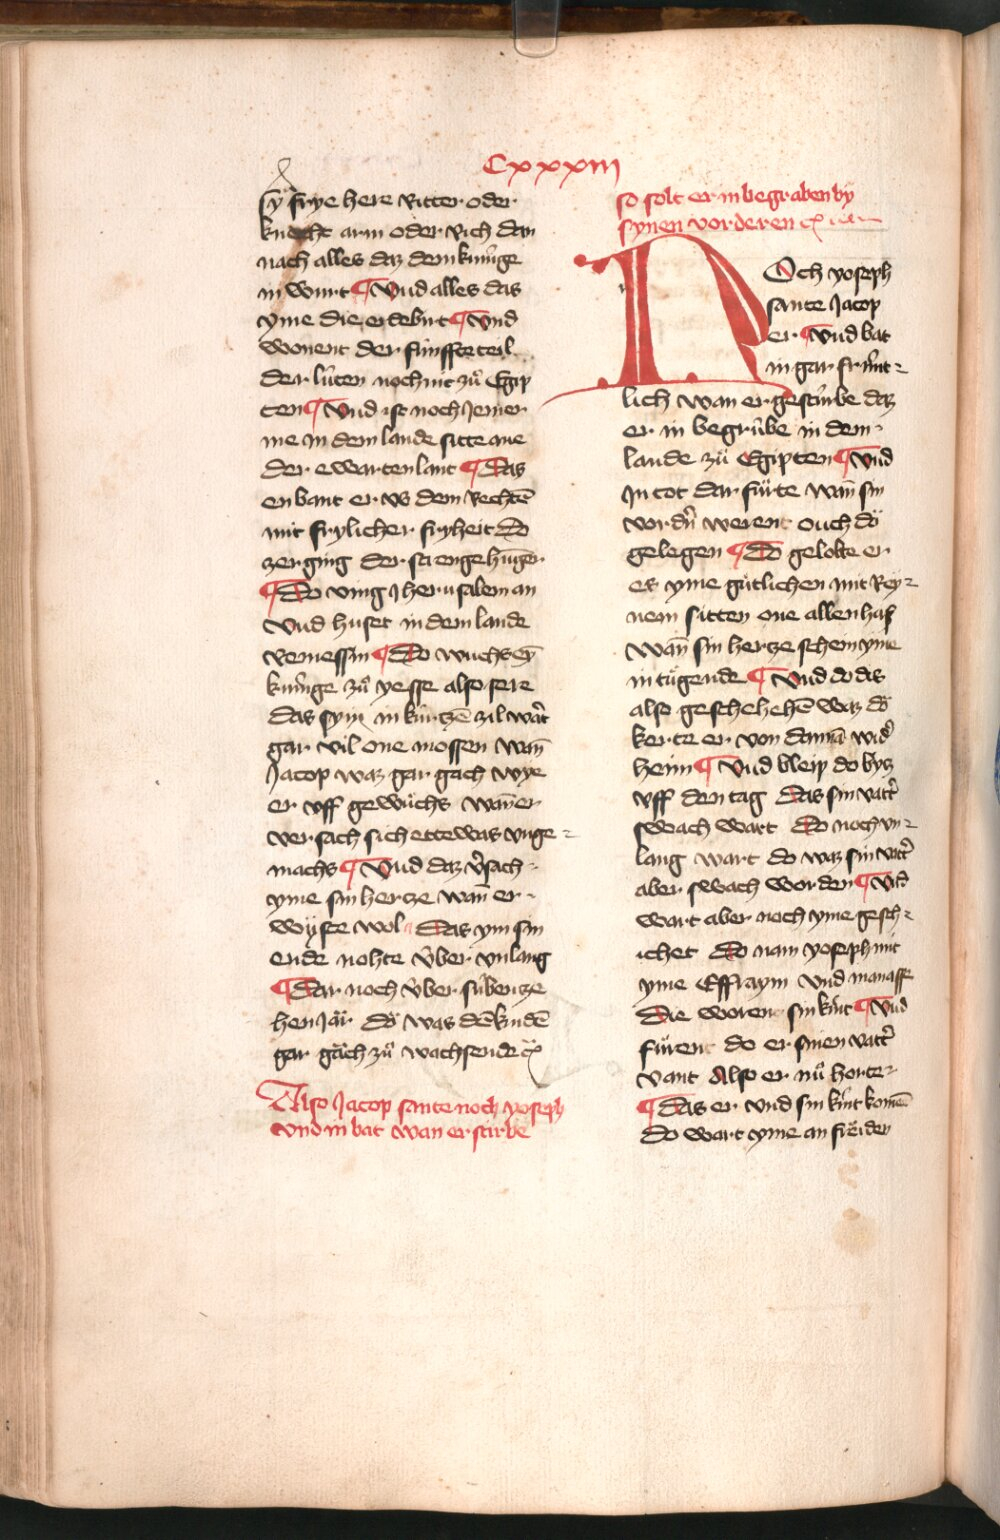 Cxxxiii
sÿ frye here Ritter oder
knecht arm oder rich dan
nach alles daz dem kunige
in wurt ¶ Vnd alles das
yme die erde brut ¶ Vnd
wonent der fünffte teil
der lüten noch mit zů Egip
ten ¶ Vnd ist noch Jemer
me in dem lande sitte ane
der ewarten lant ¶ Das
enbant er vs dem Rechtē
mit frylicher fryheit Do
zerging der strenge hūger
¶ Do ving Jherusalem an
vnd huset in dem lande
remessin ¶ Do wuchs eȳ
kunige zů yesse also sere
das sym in kurtzē zil wart
gar vil one mossen wan̄
Jacop waz gar gach wye
er vff gewüchs wan̄ er
versach sich ettewas vnge-
machs ¶ Vnd daz v̓sach
yme sin hercze wan̄ er
wÿste wol Das ym sin
ende nohte über vnlang
¶ Dar noch über sübenze
hen Jär Dö was dē kindē
gar gäch zů wachsende
Also Jacop sante noch yoseph
vnd in bat wan er stirbe
so solt er in begraben by
synen vorderen
Noch yoseph
sante Jacop
er ¶ Vnd bat
in gar frünt-
lich wan er gestürbe daz
er in begrübe in dem
lande zů Egipten ¶ Vnd
In tot dar fürte wan̄ sin
vordn̄ werent ouch dö
gelegen ¶ Do gelobte er
es yme gütlichen mit Rey-
nem sitten one allen haß
wan̄ sin hertze schein yme
in tügende ¶ Vnd do dis
also geschehehē waz dö
kerte er von dannā wid̓
heim ¶ Vnd bleip do bysz
vff den tag Das sin vatt̓
swach wart Do noch vn-
lang wart do waz sin vatt̓
aber swach worden ¶ Vnd
wart aber noch yme gesch-
ichet Do nam yoseph mit
yme Effraym vnd manasse
Die woren sin kint ¶ Vnd
fürent do er sinen vatt̓
vant Also er nů horte
¶ Das er vnd sin kint komē
do wart yme an freiden